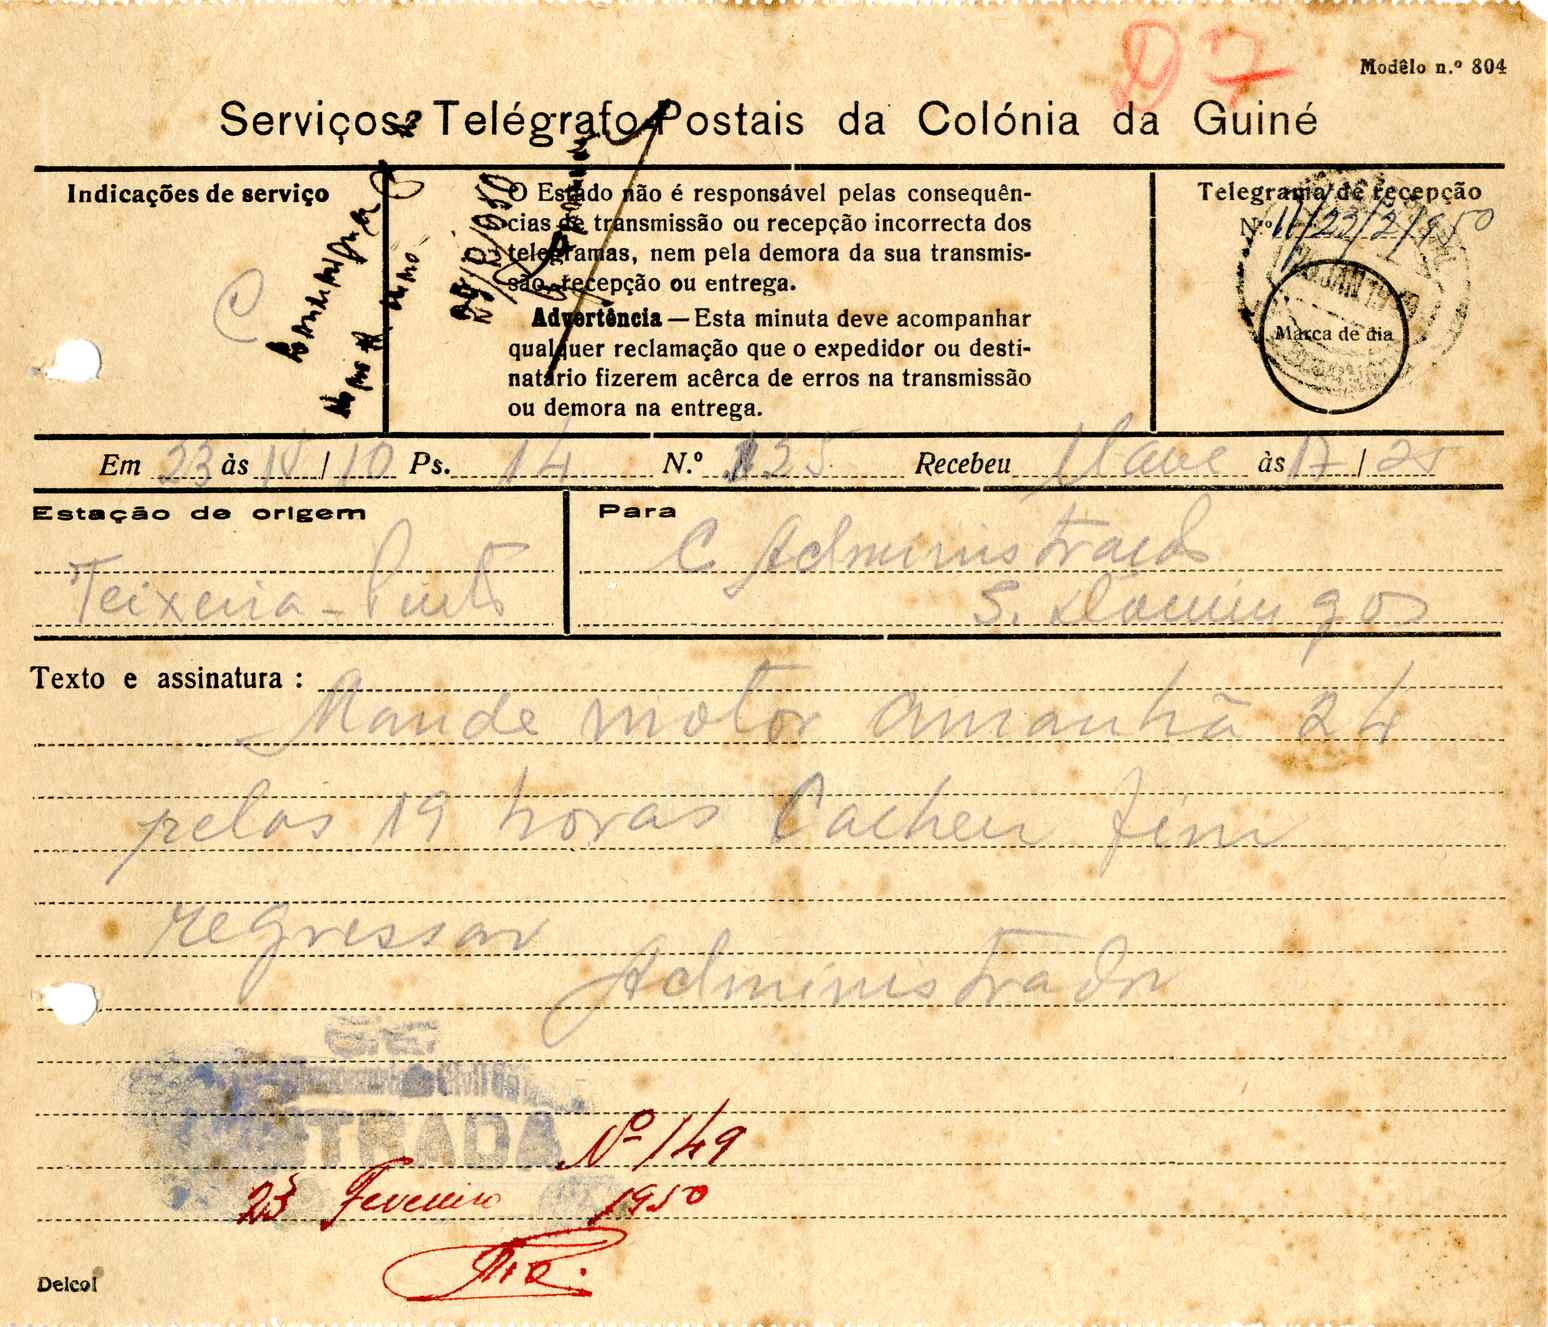 D 7
Modêlo n.º 804
Serviços Telégrafo-Postais da Colónia da Guiné
Indicações de serviço
O Estado não é responsável pelas consequên-
cias de transmissão ou recepção incorrecta dos
telegramas, nem pela demora da sua transmis-
são, recepção ou entrega.
Advertência — Esta minuta deve acompanhar
qualquer reclamação que o expedidor ou desti-
natário fizerem acêrca de erros na transmissão
ou demora na entrega.
Telegrama de recepção
N.º 11/23/2/950
Marca de dia
C
Em 23 às 15 / 10 Ps. 14 N.º 125 Recebeu às 17 / 25
Estação de origem
Teixeira-Pinto
Para
C Administrador
S. Domingos
Texto e assinatura :
Mande motor amanhã 24
pelas 19 horas Cacheu fim
regressar
Administrador
ENTRADA
Nº 149
23 Fevereiro 1950
Delcol